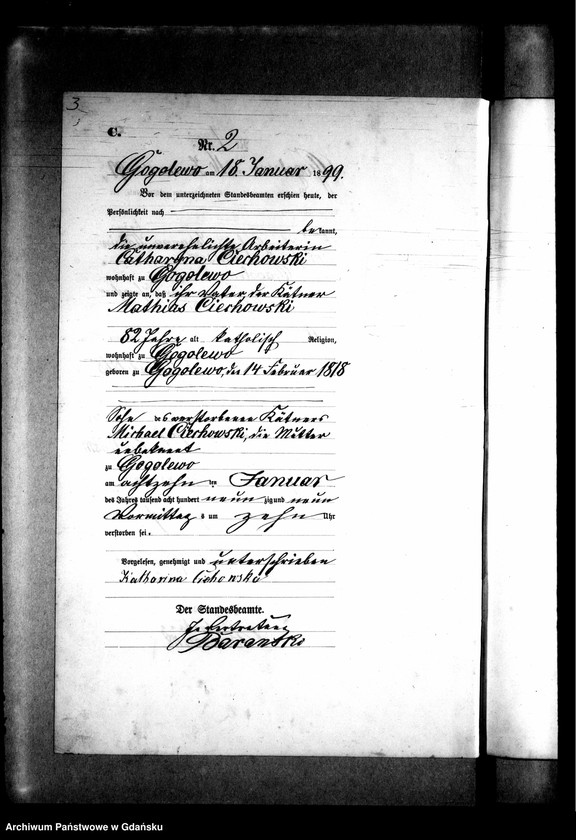 3
C.
Nr. 2
Gogolewo am 18. Januar 1899.
Vor dem unterzeichneten Standesbeamten erschien heute, der
Persönlichkeit nach
bekannt,
die unverehelichte Arbeiterin
Catharyna Ciechowski
wohnhaft zu Gogolewo
und zeigte an, daß ihr Vater, der Käthner
Mathias Ciechowski
82 Jahre alt katholisch Religion,
wohnhaft zu Gogolewo
geboren zu Gogolewo, den 14 Februar 1818
Sohn des verstorbenen Käthners
Michael Ciechowski, die Mutter
unbekannt
zu Gogolewo
am achtzehn ten Januar
des Jahres tausend acht hundert neunzig und neun
Vormittag s um zehn Uhr
verstorben sei.
Vorgelesen, genehmigt und unterschrieben
Katharina Cichowski
Der Standesbeamte.
In Vertretung
Baranski
Archiwum Państwowe w Gdańsku